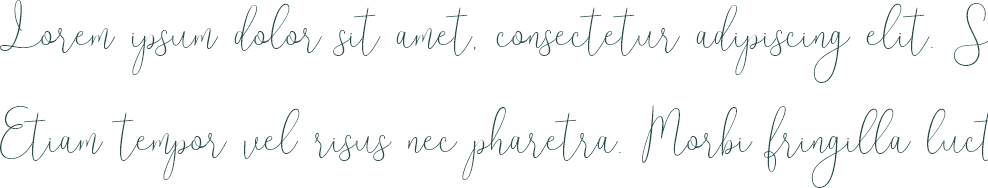 Lorem ipsum dolor sit amet, consectetur adipiscing elit. S
Etiam tempor vel risus nec pharetra. Morbi fringilla luct